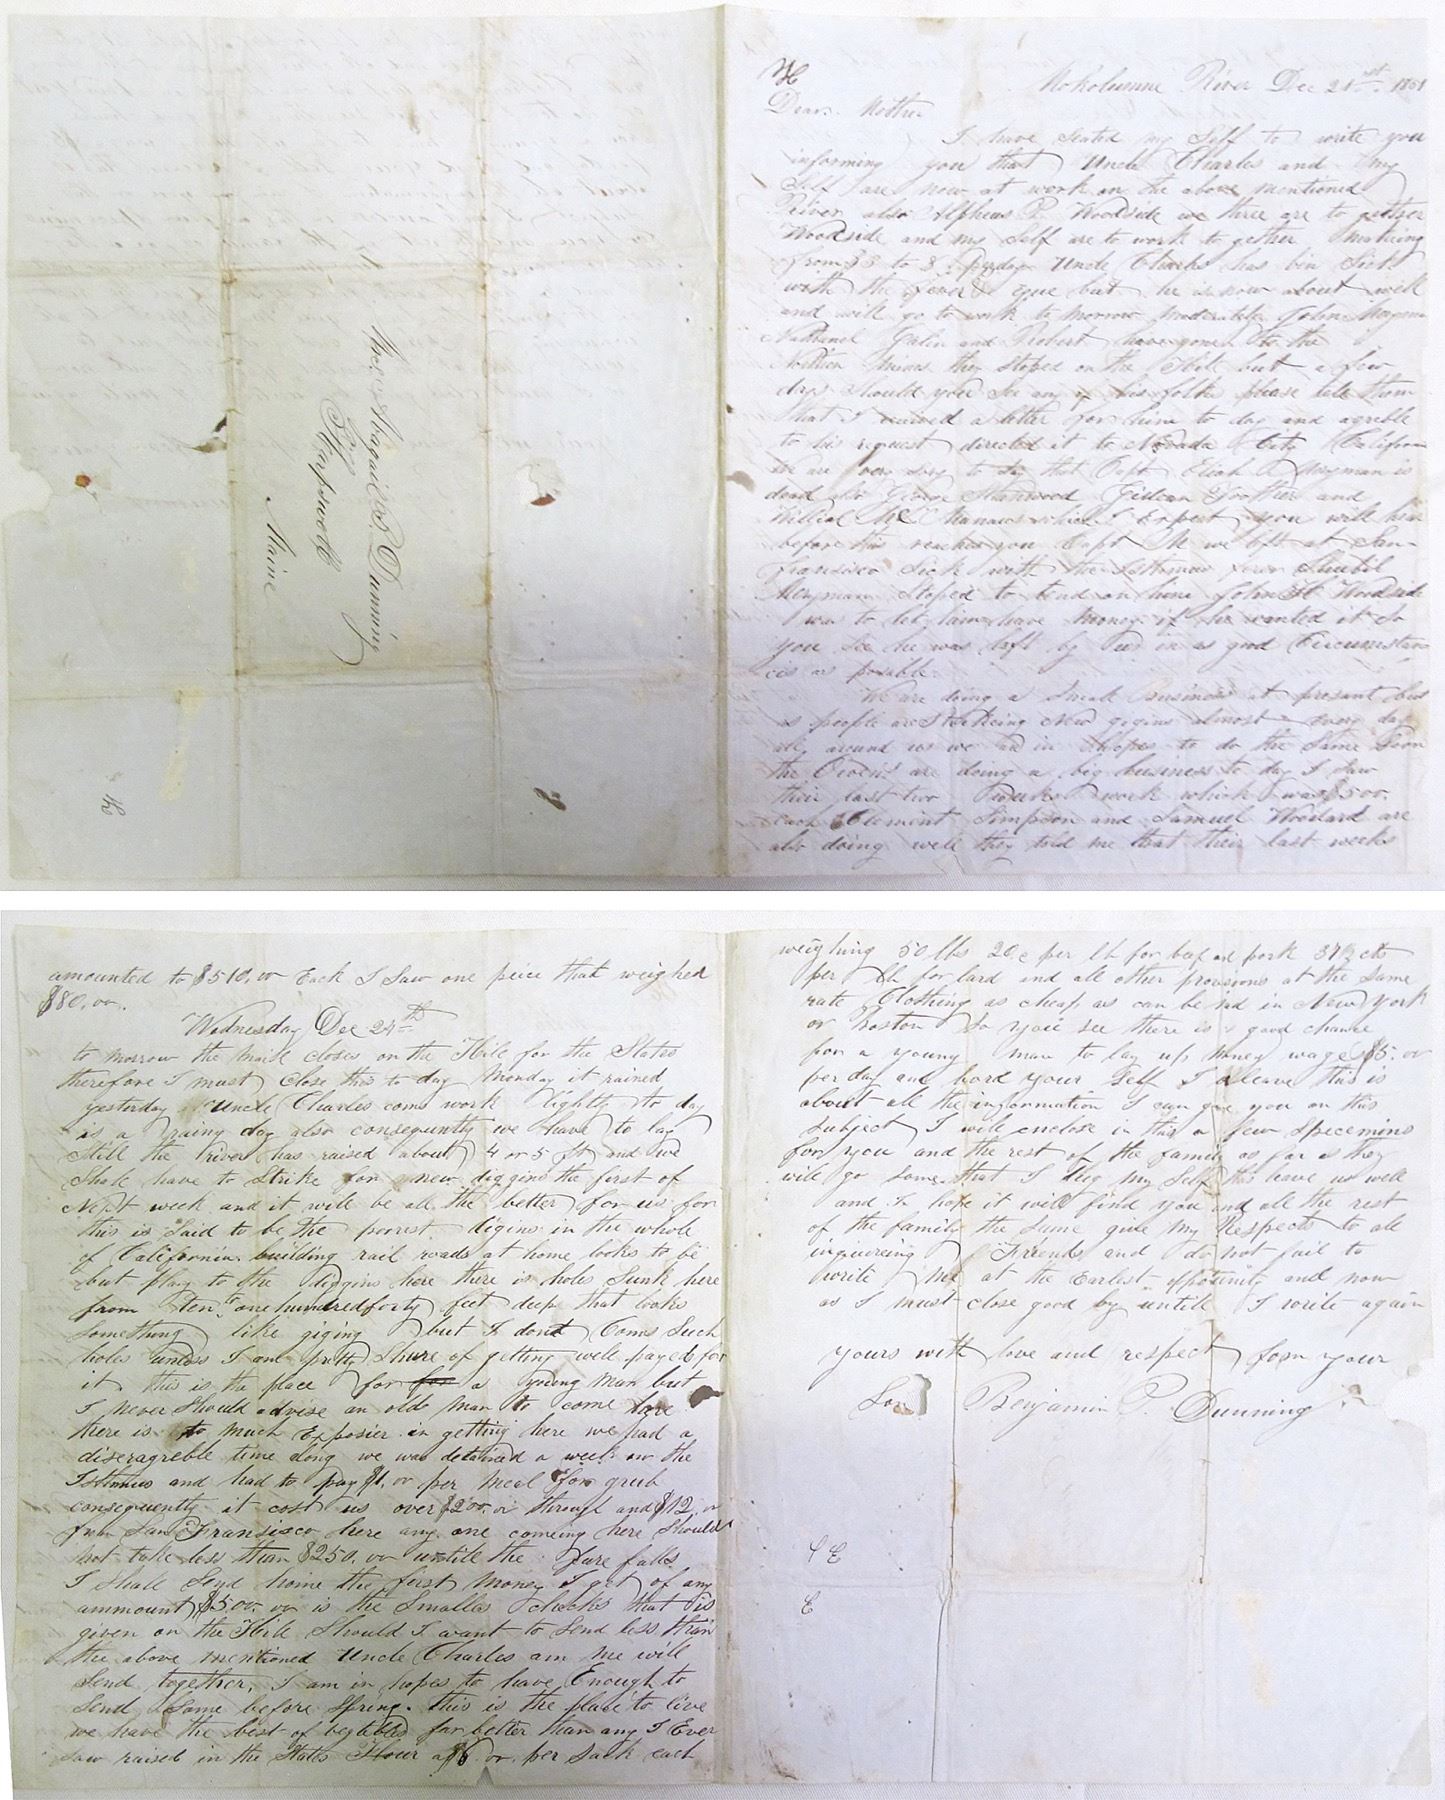 Mrs. Abigail S. Dunning
Harpswell
Maine
Mokolumne River Dec 21st 1851
Dear Mother
I have Seated my Self to write you
informing you that Uncle Charles and my
Self are now at work on the above mentioned
River also Alpheus P. Woodside we three are to gether
Woodside and my Self are to work to gether making
from $3 to 8 perday Uncle Charles has bin Sick
with the fever & gue but he is now about well
and will go to work to morrow moderately John Meryman
Nathanel Galin and Robert have gone to the
Northen mines they stoped on the Hill but a few
days Should you See any of his folks please tell them
that I received a letter for him to day and agreble
to his request directed it to Nevada City California
we are very sory to say that Capt Eliah Meryman is
dead also George Sharwood and
which I Expect you will hear
before this reaches you Capt M we left at San
Fransisco Sick with the Isthmus fever
Meryman stoped to tend on him John H Woodside
was to let him have money if he wanted it So
you See he was left by us in as good Circumstan
cis as posable
We are doing a Small Business at presant but
as people are Strikeing New digins almost every day
all around us we are in hopes to do the Same Soon
the Owens are doing a big business to day I Saw
their last two weeks work which was $500.
each Clement Simpson and Samuel Woodard are
also doing well they told me that their last weeks
amounted to $510.00 Each I Saw one peice that weighed
$80.00.
Wednesday Dec 24th
to morrow the mail closes on the Hill for the States
therefore I must Close this to day Monday it rained
yesterday Uncle Charles coms work lightly to day
is a rainy day also consequently we have to lay
Still the river has raised about 4 or 5 ft and we
Shall have to Strike for new diggins the first of
Next week and it will be all the better for us for
this is Said to be the poorest digins in the whole
of California building rail roads at home looks to be
but play to the diggins here there is holes Sunk here
from ten to one hundred forty feet deep that looks
Something like giging but I dont Coms Such
holes unless I am pretty Shure of getting well payed for
it. this is the place for for a young man but
I never Should advise an olde man to come here
there is to much Exposier in getting here we had a
diseragreble time along we was detained a week on the
Isthmus and had to pay $1.00 per meal for grub
consequently it cost us over $200.00 through and $12.00
from San Fransisco here any one comeing here Should
not take less than $250.00 untile the fare falls
I Shall Send home the first money I get of any
ammount $500.00 is the Smalles checks that is
given on the Hill Should I want to Send less than
the above mentioned Uncle Charles an me will
Send together, I am in hopes to have Enough to
Send Some before Spring. this is the place to live
we have the best of vegtebles far better than any I Ever
Saw raised in the States Flour a $6.00 per Sack each
weighing 50 lbs 20c per lb for beef and pork 37½ cts
per lb for lard and all other provisions at the Same
rate Clothing as cheap as can be had in New York
or Boston So you see there is a good chance
for a young man to lay up money wages $5.00
per day and bord your Self I beleave this is
about all the information I can give you on this
Subject I will enclose in this a few Specemins
for you and the rest of the family as far as they
will go Some that I dug my Self this leave us well
and I hope it will find you and all the rest
of the family the Same give my Respects to all
inquireing Friends and do not fail to
write me at the Earlest oppotunity and now
as I must close good by untile I write again
yours with love and respect from your
Son Benjamin P. Dunning